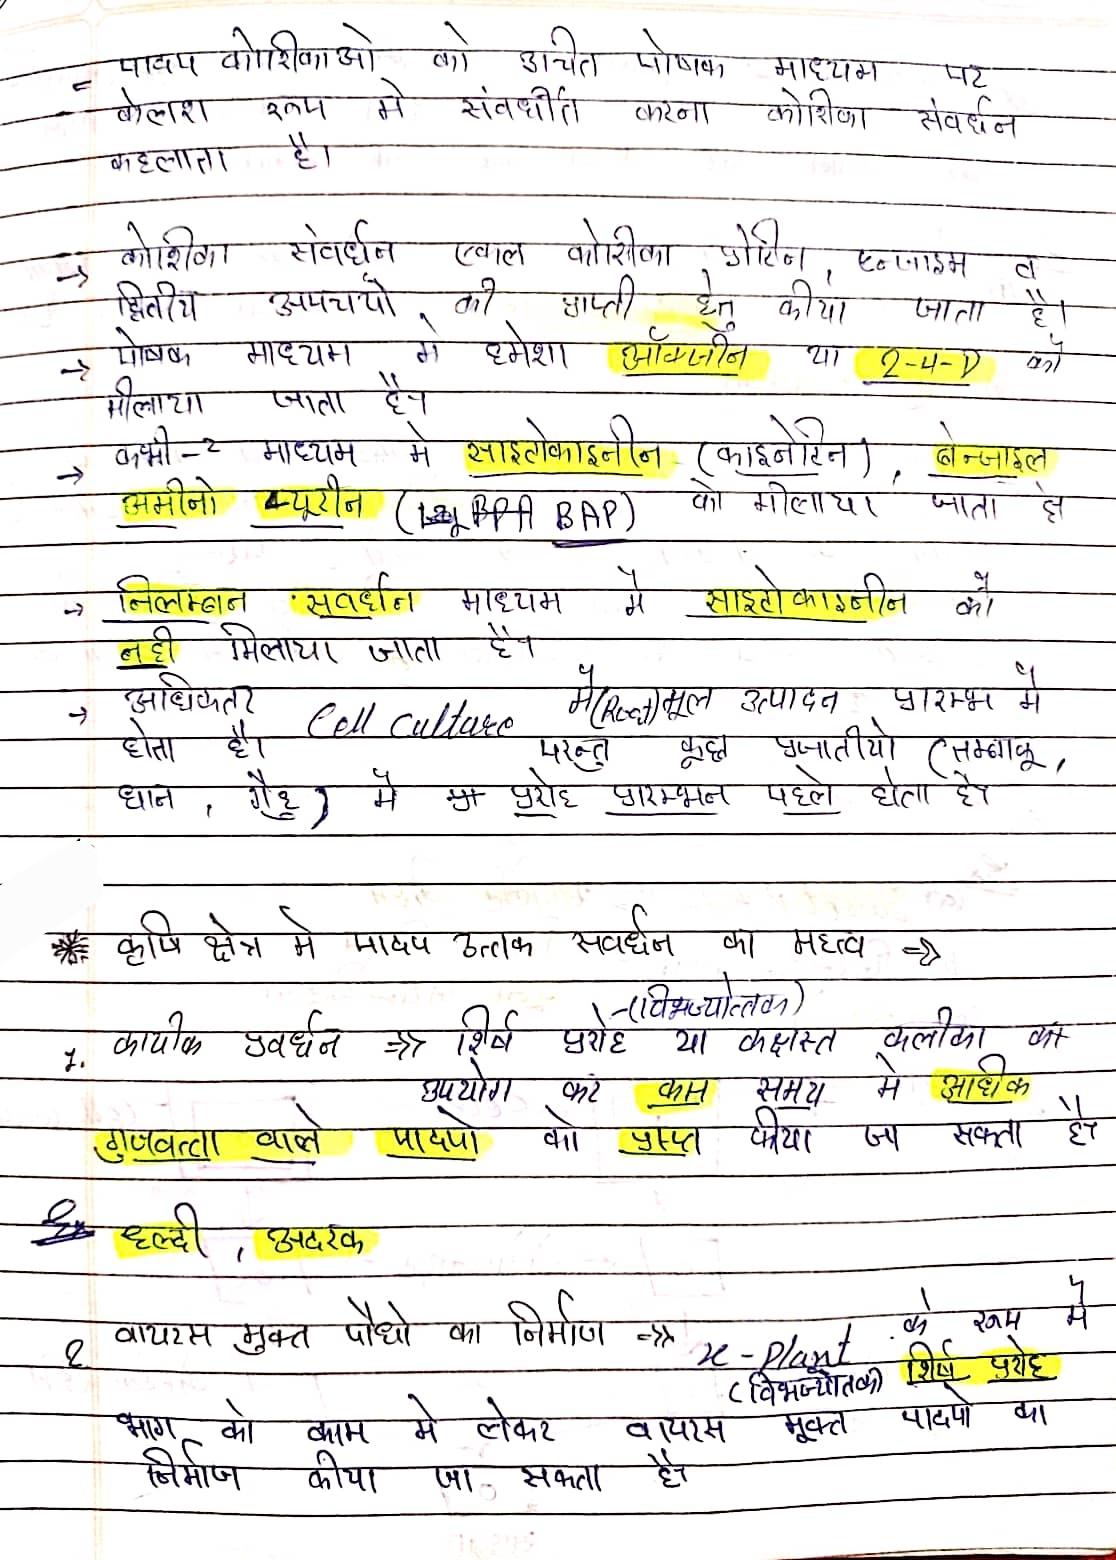 = पादप कोशिकाओ को उचित पोषक माध्यम पर
केलश रूप मे संवर्धीत करना कोशिका संवर्धन
कहलाता है।
→ कोशिका संवर्धन एकल कोशीका प्रोटिन, एन्जाइम व
द्वितीय उपचयो की प्राप्ती हेतु कीया जाता है।
→ पोषक माध्यम मे हमेशा ऑक्जीन या 2-4-D को
मीलाया जाता है।
→ कभी-2 माध्यम मे साइटोकाइनीन (काइनेटिन), बेन्जाइल
अमीनो प्यूरीन (BAP) को मीलाया जाता है
→ निलम्बन संवर्धन माध्यम में साइटोकाइनीन को
नही मिलाया जाता है।
→ अधिकतर Cell Culture में (Root) मूल उत्पादन प्रारम्भ में
होता है। परन्तु कूछ प्रजातीयो (तम्बाकू,
धान, गैहू) में प्ररोह प्रारम्भन पहले होता है।
* कृषि क्षेत्र मे पादप उत्तक सवर्धन का महत्व ⇒
(विभज्योत्तक)
1. कायीक प्रवर्धन ⇒ शिर्ष प्ररोह या कक्षस्त कलीका का
उपयोग कर कम समय मे अधीक
गुणवत्ता वाले पादपो को प्राप्त कीया जा सकता है।
Ex हल्दी, अदरक
2 वायरस मुक्त पौधो का निर्माण ⇒ x-plant के रूप में
(विभज्योतकी) शिर्ष प्ररोह
भाग को काम मे लेकर वायरस मूक्त पादपो का
निर्माण कीया जा सकता है।